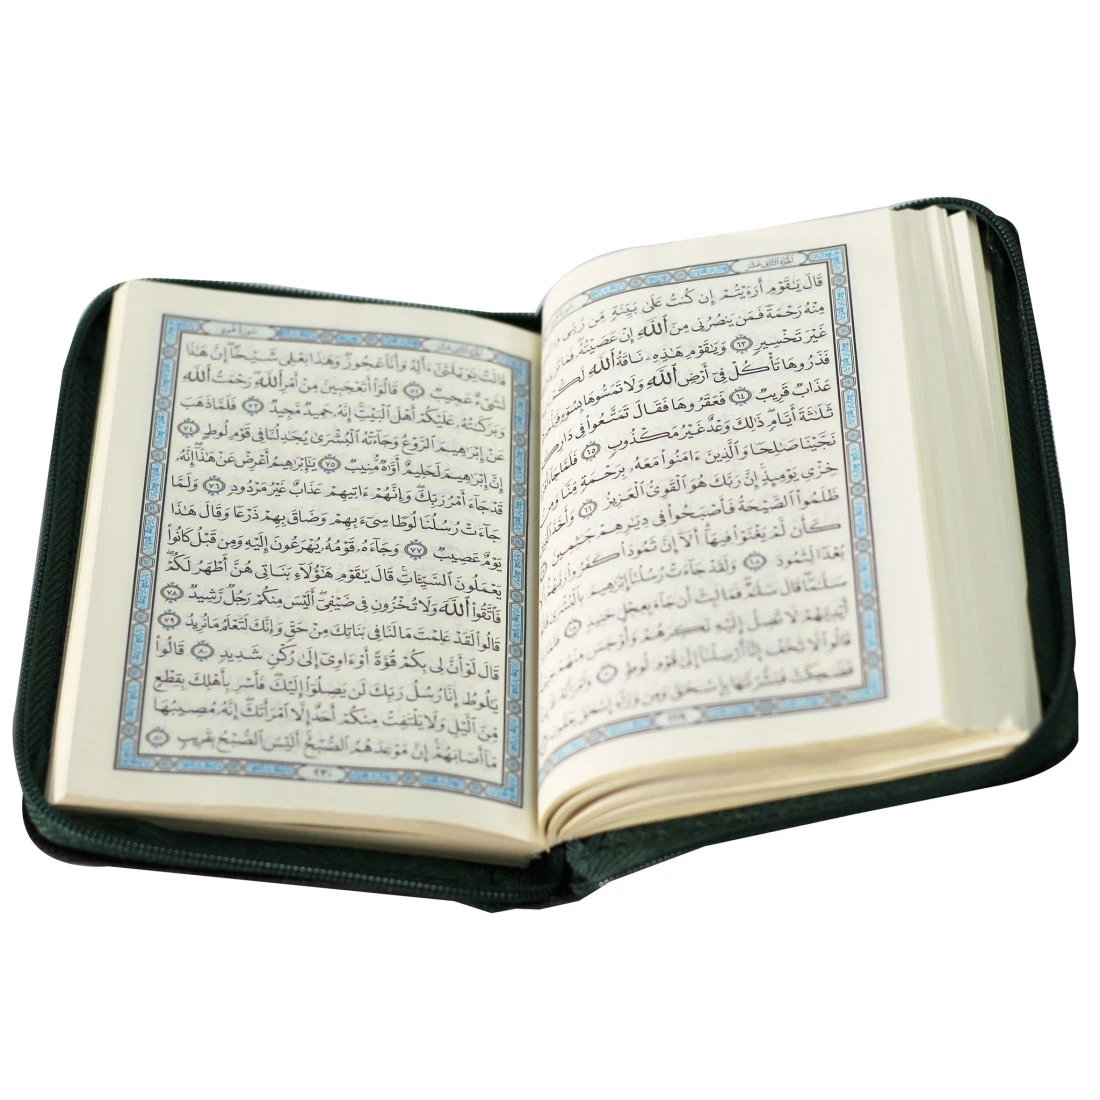 الجزء الثاني عشر
سورة
قَالَ يَٰقَوْمِ أَرَءَيْتُمْ إِن كُنتُ عَلَىٰ بَيِّنَةٍ مِّن رَّبِّى
مِنْهُ رَحْمَةً فَمَن يَنصُرُنِى مِنَ ٱللَّهِ إِنْ عَصَيْتُهُۥ فَمَا
غَيْرَ تَخْسِيرٍ ٦٣ وَيَٰقَوْمِ هَٰذِهِۦ نَاقَةُ ٱللَّهِ لَكُمْ
فَذَرُوهَا تَأْكُلْ فِىٓ أَرْضِ ٱللَّهِ وَلَا تَمَسُّوهَا بِسُوٓءٍ
عَذَابٌ قَرِيبٌ ٦٤ فَعَقَرُوهَا فَقَالَ تَمَتَّعُوا۟ فِى دَارِكُمْ
ثَلَٰثَةَ أَيَّامٍ ذَٰلِكَ وَعْدٌ غَيْرُ مَكْذُوبٍ ٦٥ فَلَمَّا جَآءَ
نَجَّيْنَا صَٰلِحًا وَٱلَّذِينَ ءَامَنُوا۟ مَعَهُۥ بِرَحْمَةٍ مِّنَّا وَمِنْ
خِزْىِ يَوْمِئِذٍ إِنَّ رَبَّكَ هُوَ ٱلْقَوِىُّ ٱلْعَزِيزُ ٦٦ وَأَخَذَ ٱلَّذِينَ
ظَلَمُوا۟ ٱلصَّيْحَةُ فَأَصْبَحُوا۟ فِى دِيَٰرِهِمْ جَٰثِمِينَ
كَأَن لَّمْ يَغْنَوْا۟ فِيهَآ أَلَآ إِنَّ ثَمُودَا۟ كَفَرُوا۟ رَبَّهُمْ
بُعْدًا لِّثَمُودَ ٦٨ وَلَقَدْ جَآءَتْ رُسُلُنَآ إِبْرَٰهِيمَ بِٱلْبُشْرَىٰ
سَلَٰمًا قَالَ سَلَٰمٌ فَمَا لَبِثَ أَن جَآءَ بِعِجْلٍ حَنِيذٍ ٦٩
أَيْدِيَهُمْ لَا تَصِلُ إِلَيْهِ نَكِرَهُمْ وَأَوْجَسَ مِنْهُمْ
قَالُوا۟ لَا تَخَفْ إِنَّآ أُرْسِلْنَآ إِلَىٰ قَوْمِ لُوطٍ ٧٠ وَٱمْرَأَتُهُۥ
فَضَحِكَتْ فَبَشَّرْنَٰهَا بِإِسْحَٰقَ وَمِن وَرَآءِ إِسْحَٰقَ يَعْقُوبَ
٢٢٩
الجزء الثاني عشر
سورة هود
قَالَتْ يَٰوَيْلَتَىٰٓ ءَأَلِدُ وَأَنَا۠ عَجُوزٌ وَهَٰذَا بَعْلِى شَيْخًا إِنَّ هَٰذَا
لَشَىْءٌ عَجِيبٌ ٧٢ قَالُوٓا۟ أَتَعْجَبِينَ مِنْ أَمْرِ ٱللَّهِ رَحْمَتُ ٱللَّهِ
وَبَرَكَٰتُهُۥ عَلَيْكُمْ أَهْلَ ٱلْبَيْتِ إِنَّهُۥ حَمِيدٌ مَّجِيدٌ ٧٣ فَلَمَّا ذَهَبَ
عَنْ إِبْرَٰهِيمَ ٱلرَّوْعُ وَجَآءَتْهُ ٱلْبُشْرَىٰ يُجَٰدِلُنَا فِى قَوْمِ لُوطٍ ٧٤
إِنَّ إِبْرَٰهِيمَ لَحَلِيمٌ أَوَّٰهٌ مُّنِيبٌ ٧٥ يَٰٓإِبْرَٰهِيمُ أَعْرِضْ عَنْ هَٰذَآ إِنَّهُۥ
قَدْ جَآءَ أَمْرُ رَبِّكَ وَإِنَّهُمْ ءَاتِيهِمْ عَذَابٌ غَيْرُ مَرْدُودٍ ٧٦ وَلَمَّا
جَآءَتْ رُسُلُنَا لُوطًا سِىٓءَ بِهِمْ وَضَاقَ بِهِمْ ذَرْعًا وَقَالَ هَٰذَا
يَوْمٌ عَصِيبٌ ٧٧ وَجَآءَهُۥ قَوْمُهُۥ يُهْرَعُونَ إِلَيْهِ وَمِن قَبْلُ كَانُوا۟
يَعْمَلُونَ ٱلسَّيِّـَٔاتِ قَالَ يَٰقَوْمِ هَٰٓؤُلَآءِ بَنَاتِى هُنَّ أَطْهَرُ لَكُمْ
فَٱتَّقُوا۟ ٱللَّهَ وَلَا تُخْزُونِ فِى ضَيْفِىٓ أَلَيْسَ مِنكُمْ رَجُلٌ رَّشِيدٌ ٧٨
قَالُوا۟ لَقَدْ عَلِمْتَ مَا لَنَا فِى بَنَاتِكَ مِنْ حَقٍّ وَإِنَّكَ لَتَعْلَمُ مَا نُرِيدُ ٧٩
قَالَ لَوْ أَنَّ لِى بِكُمْ قُوَّةً أَوْ ءَاوِىٓ إِلَىٰ رُكْنٍ شَدِيدٍ ٨٠ قَالُوا۟
يَٰلُوطُ إِنَّا رُسُلُ رَبِّكَ لَن يَصِلُوٓا۟ إِلَيْكَ فَأَسْرِ بِأَهْلِكَ بِقِطْعٍ
مِّنَ ٱلَّيْلِ وَلَا يَلْتَفِتْ مِنكُمْ أَحَدٌ إِلَّا ٱمْرَأَتَكَ إِنَّهُۥ مُصِيبُهَا
مَآ أَصَابَهُمْ إِنَّ مَوْعِدَهُمُ ٱلصُّبْحُ أَلَيْسَ ٱلصُّبْحُ بِقَرِيبٍ ٨١
٢٣٠